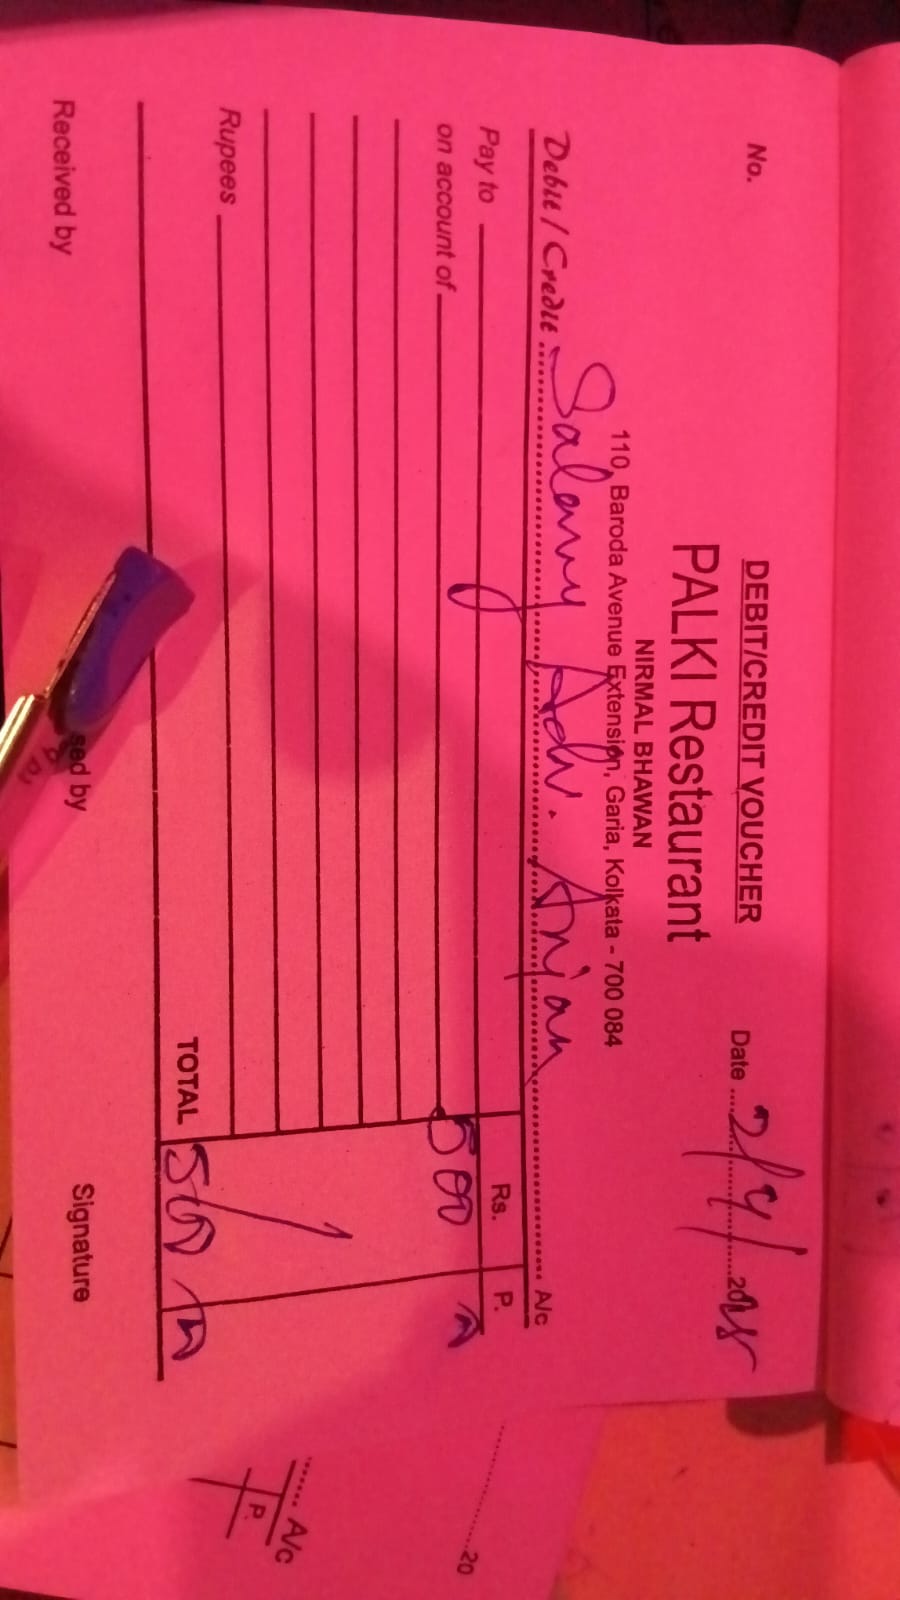 DEBIT/CREDIT VOUCHER
No.
PALKI Restaurant
Date 2/4/2025
NIRMAL BHAWAN
110, Baroda Avenue Extension, Garia, Kolkata - 700 084
Debit / Credit Salary Adv. Anjan A/c
Pay to Rs. P.
on account of 500
Rupees
TOTAL 500
Received by sed by Signature
20
A/c
P.